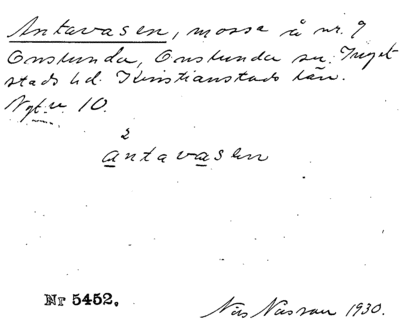 Antavasen, mosse å nr. 9
Onslunda, Onslunda sn. Inget-
stads hd. Kristianstads län.
Nyt.u 10.
2
antavasen
Nr 5452.
Nils Nassau 1930.